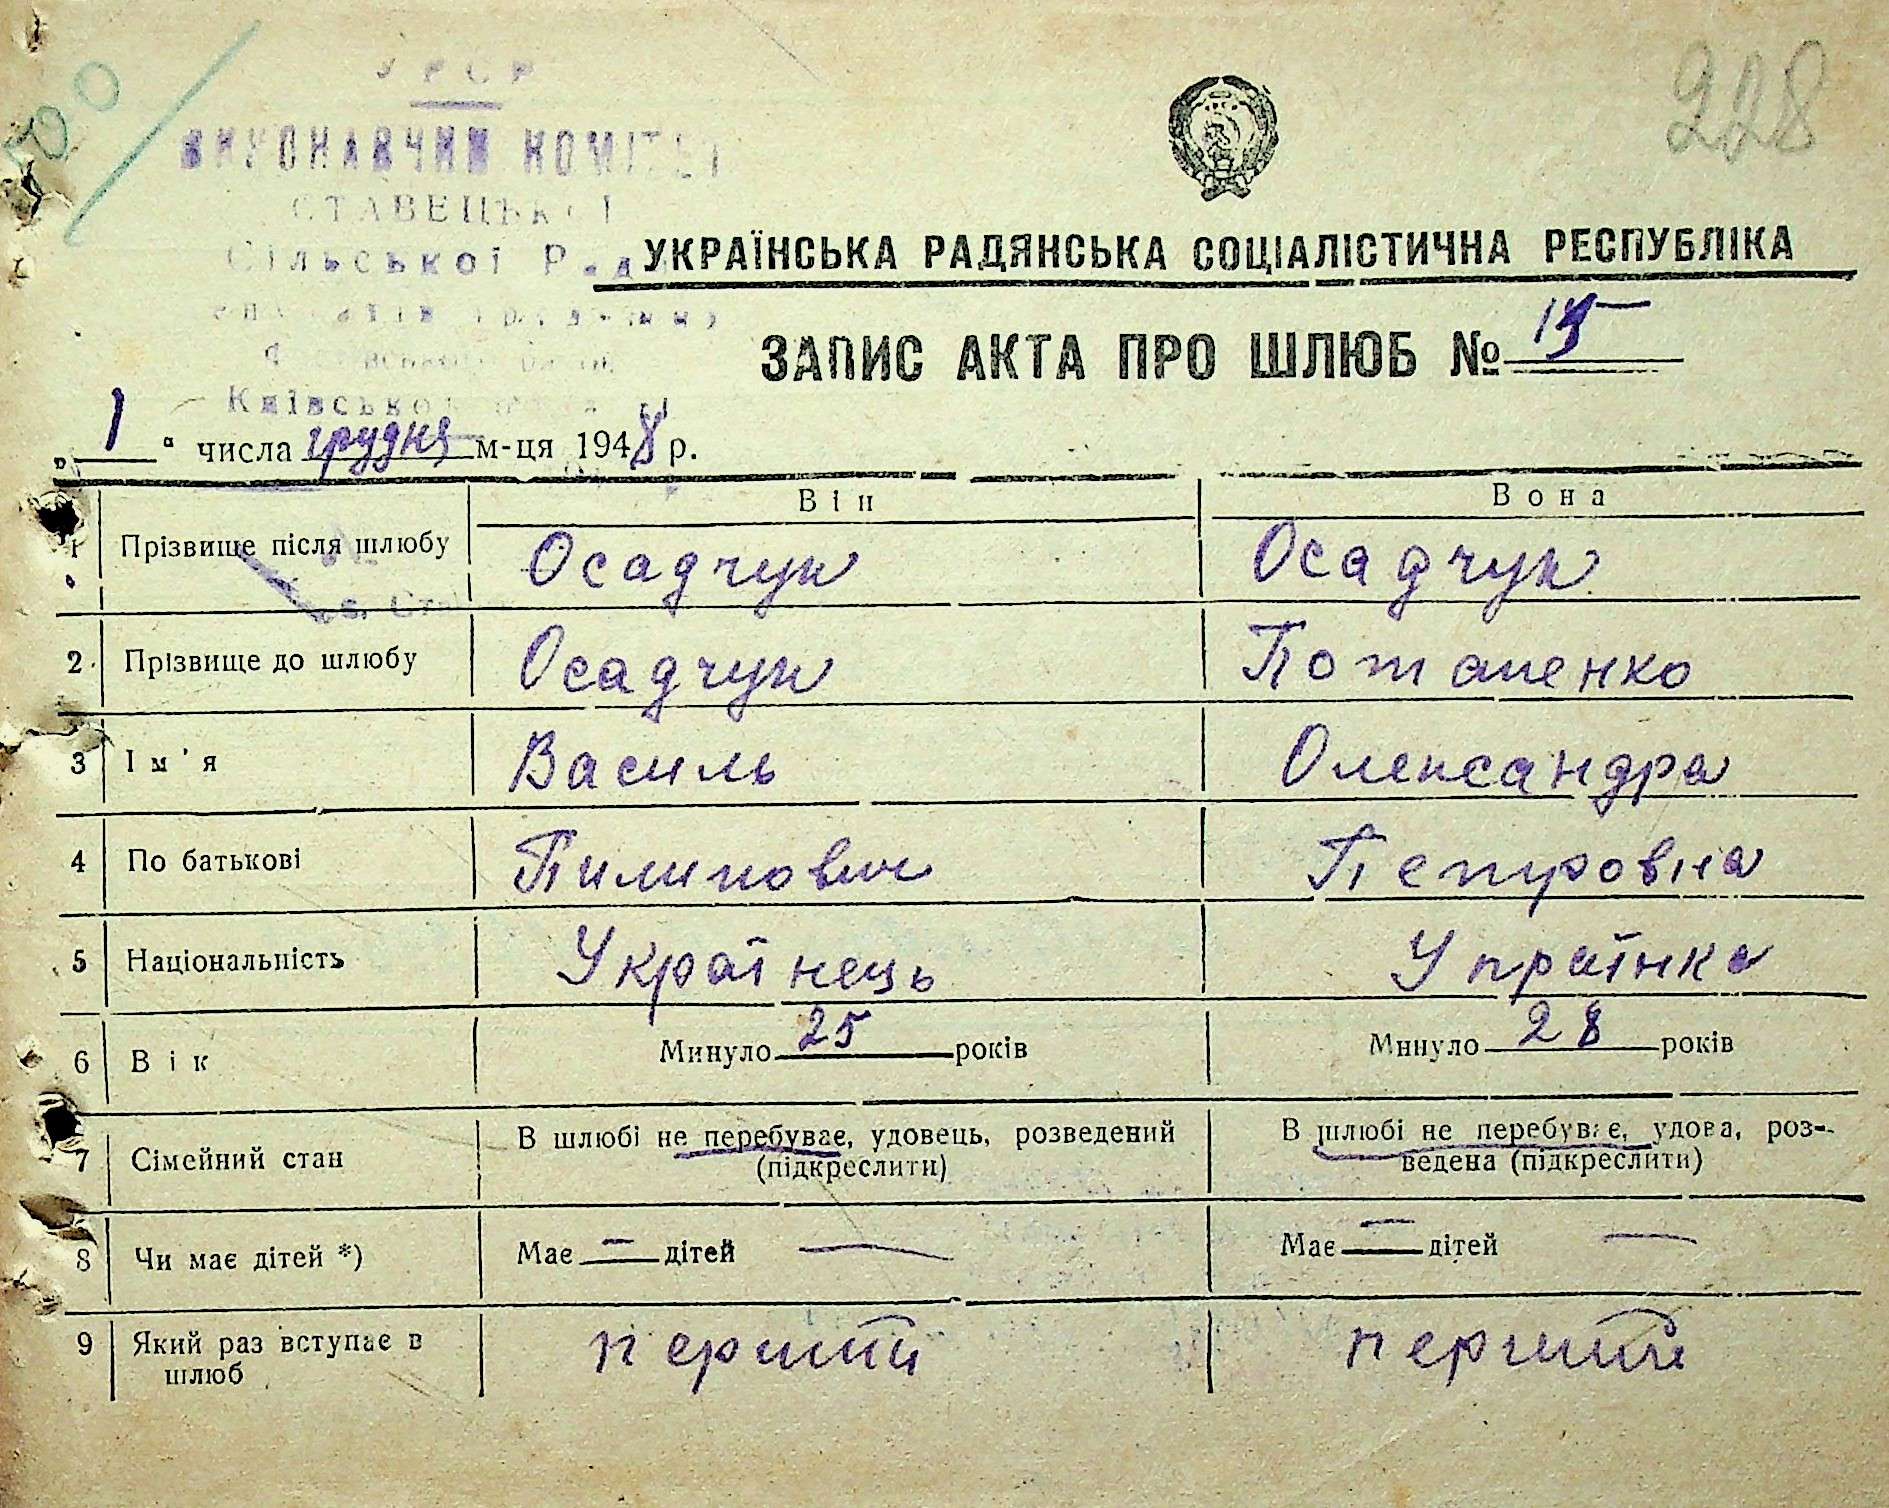 228
УРСР
ВИКОНАВЧИЙ КОМІТЕТ
СТАВЕЦЬКОЇ
Сільської
Київської
УКРАЇНСЬКА РАДЯНСЬКА СОЦІАЛІСТИЧНА РЕСПУБЛІКА
ЗАПИС АКТА ПРО ШЛЮБ № 15
„1“ числа грудня м-ця 1948 р.
Він Вона
1 Прізвище після шлюбу Осадчук Осадчук
2 Прізвище до шлюбу Осадчук Потапенко
3 Ім'я Василь Олександра
4 По батькові Пилипович Петровна
5 Національність Українець Українка
6 Вік Минуло 25 років Минуло 28 років
7 Сімейний стан В шлюбі не перебуває, удовець, розведений (підкреслити) В шлюбі не перебуває, удова, роз-
ведена (підкреслити)
8 Чи має дітей *) Має — дітей — Має — дітей —
9 Який раз вступає в перший перший
шлюб